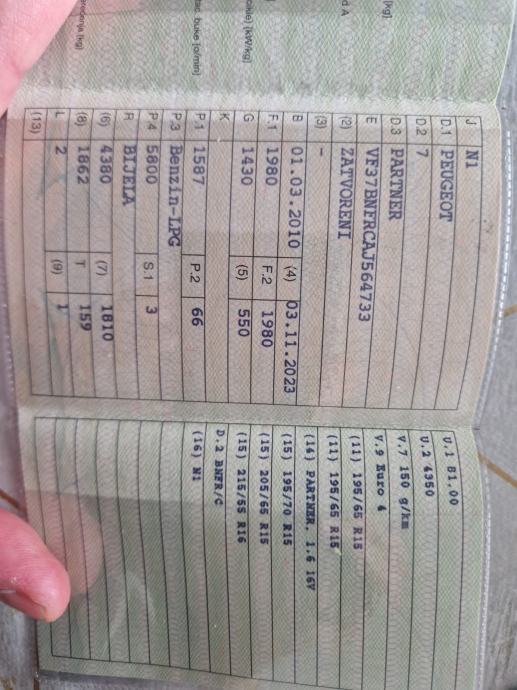 [kg]
d A
cikle) [kW/kg]
buke [o/min]
J N1
D.1 PEUGEOT
D.2 7
D.3 PARTNER
E VF37BNFRCAJ564733
(2) ZATVORENI
(3) -
B 01.03.2010 (4) 03.11.2023
F.1 1980 F.2 1980
G 1430 (5) 550
K
P.1 1587 P.2 66
P.3 Benzin-LPG
P.4 5800 S.1 3
R BIJELA
(6) 4380 (7) 1810
(8) 1862 T 159
L 2 (9) 1
(13)
U.1 81.00
U.2 4350
V.7 150 g/km
V.9 Euro 4
(11) 195/65 R15
(11) 195/65 R15
(14) PARTNER, 1.6 16V
(15) 195/70 R15
(15) 205/65 R15
(15) 215/55 R16
D.2 BNFR/C
(16) N1